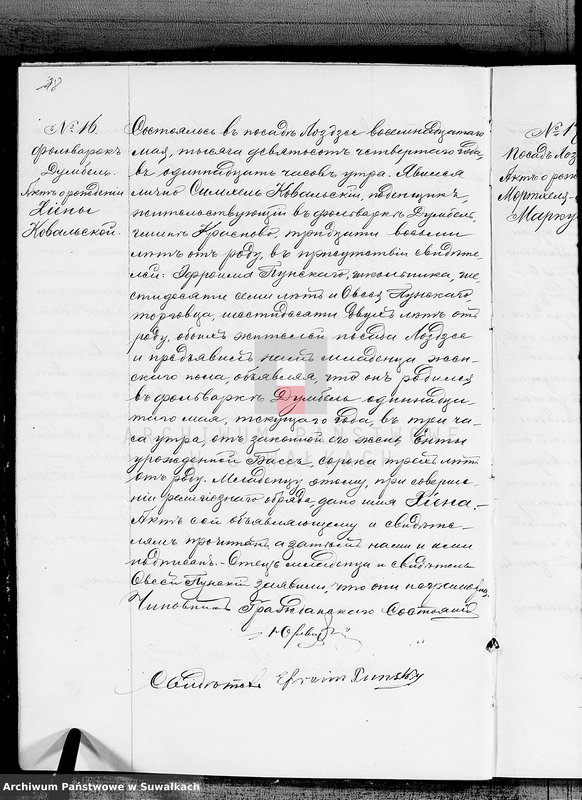 № 16.
Фольваркъ
Думбель.
Актъ о рожденіи
Хейны
Ковальской.
Состоялось въ посадѣ Лоздзее восемнадцатаго
мая, тысяча девятьсотъ четвертаго года,
въ одиннадцать часовъ утра. Явился
лично Ковальскій, поденщикъ,
жительствующій въ фольваркѣ Думбель,
гмины тридцати восьми
лѣтъ отъ роду, въ присутствіи свидѣте-
лей: Пунскаго, школьника, ше-
стидесяти семи лѣтъ и Овсея Пунскаго,
торговца, шестидесяти двухъ лѣтъ отъ
роду, обоихъ жителей посада Лоздзее
и предъявилъ намъ младенца жен-
скаго пола, объявляя, что онъ родился
въ фольваркѣ Думбель одиннадца-
таго мая, текущаго года, въ три ча-
са утра, отъ законной его жены Енты
урожденной Бассъ, сорока трехъ лѣтъ
отъ роду. Младенцу этому, при соверше-
ніи религіознаго обряда дано имя Хейна.-
Актъ сей объявляющему и свидѣте-
лямъ прочитанъ, а затѣмъ нами и ими
подписанъ.- Отецъ младенца и свидѣтель
Овсей Пунскій заявили, что они неграмотны.
Чиновникъ Гражданскаго Состоянія
Свидѣтель Efroim Punsky
№ 1
Посадъ Лоз
Актъ о рож
Марку
ARCHIWUM PAŃSTWOWE
W SUWAŁKACH
Archiwum Państwowe w Suwałkach